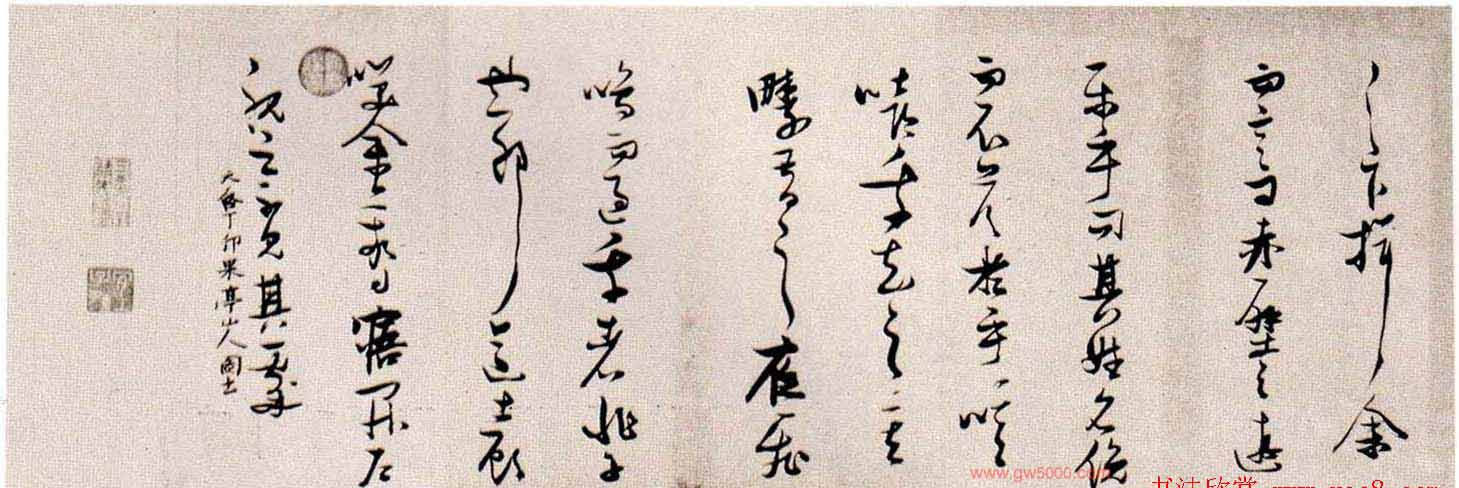 之下揖余
而言曰赤壁之遊
樂乎問其姓名俛
而不答於乎噫
嘻我知之矣
疇昔之夜飛
鳴而過我者非子
也耶道士顧
笑余亦驚寤開户
視之不見其處
天啓丁卯果亭山人圖
www.gw5000.com
书法欣赏